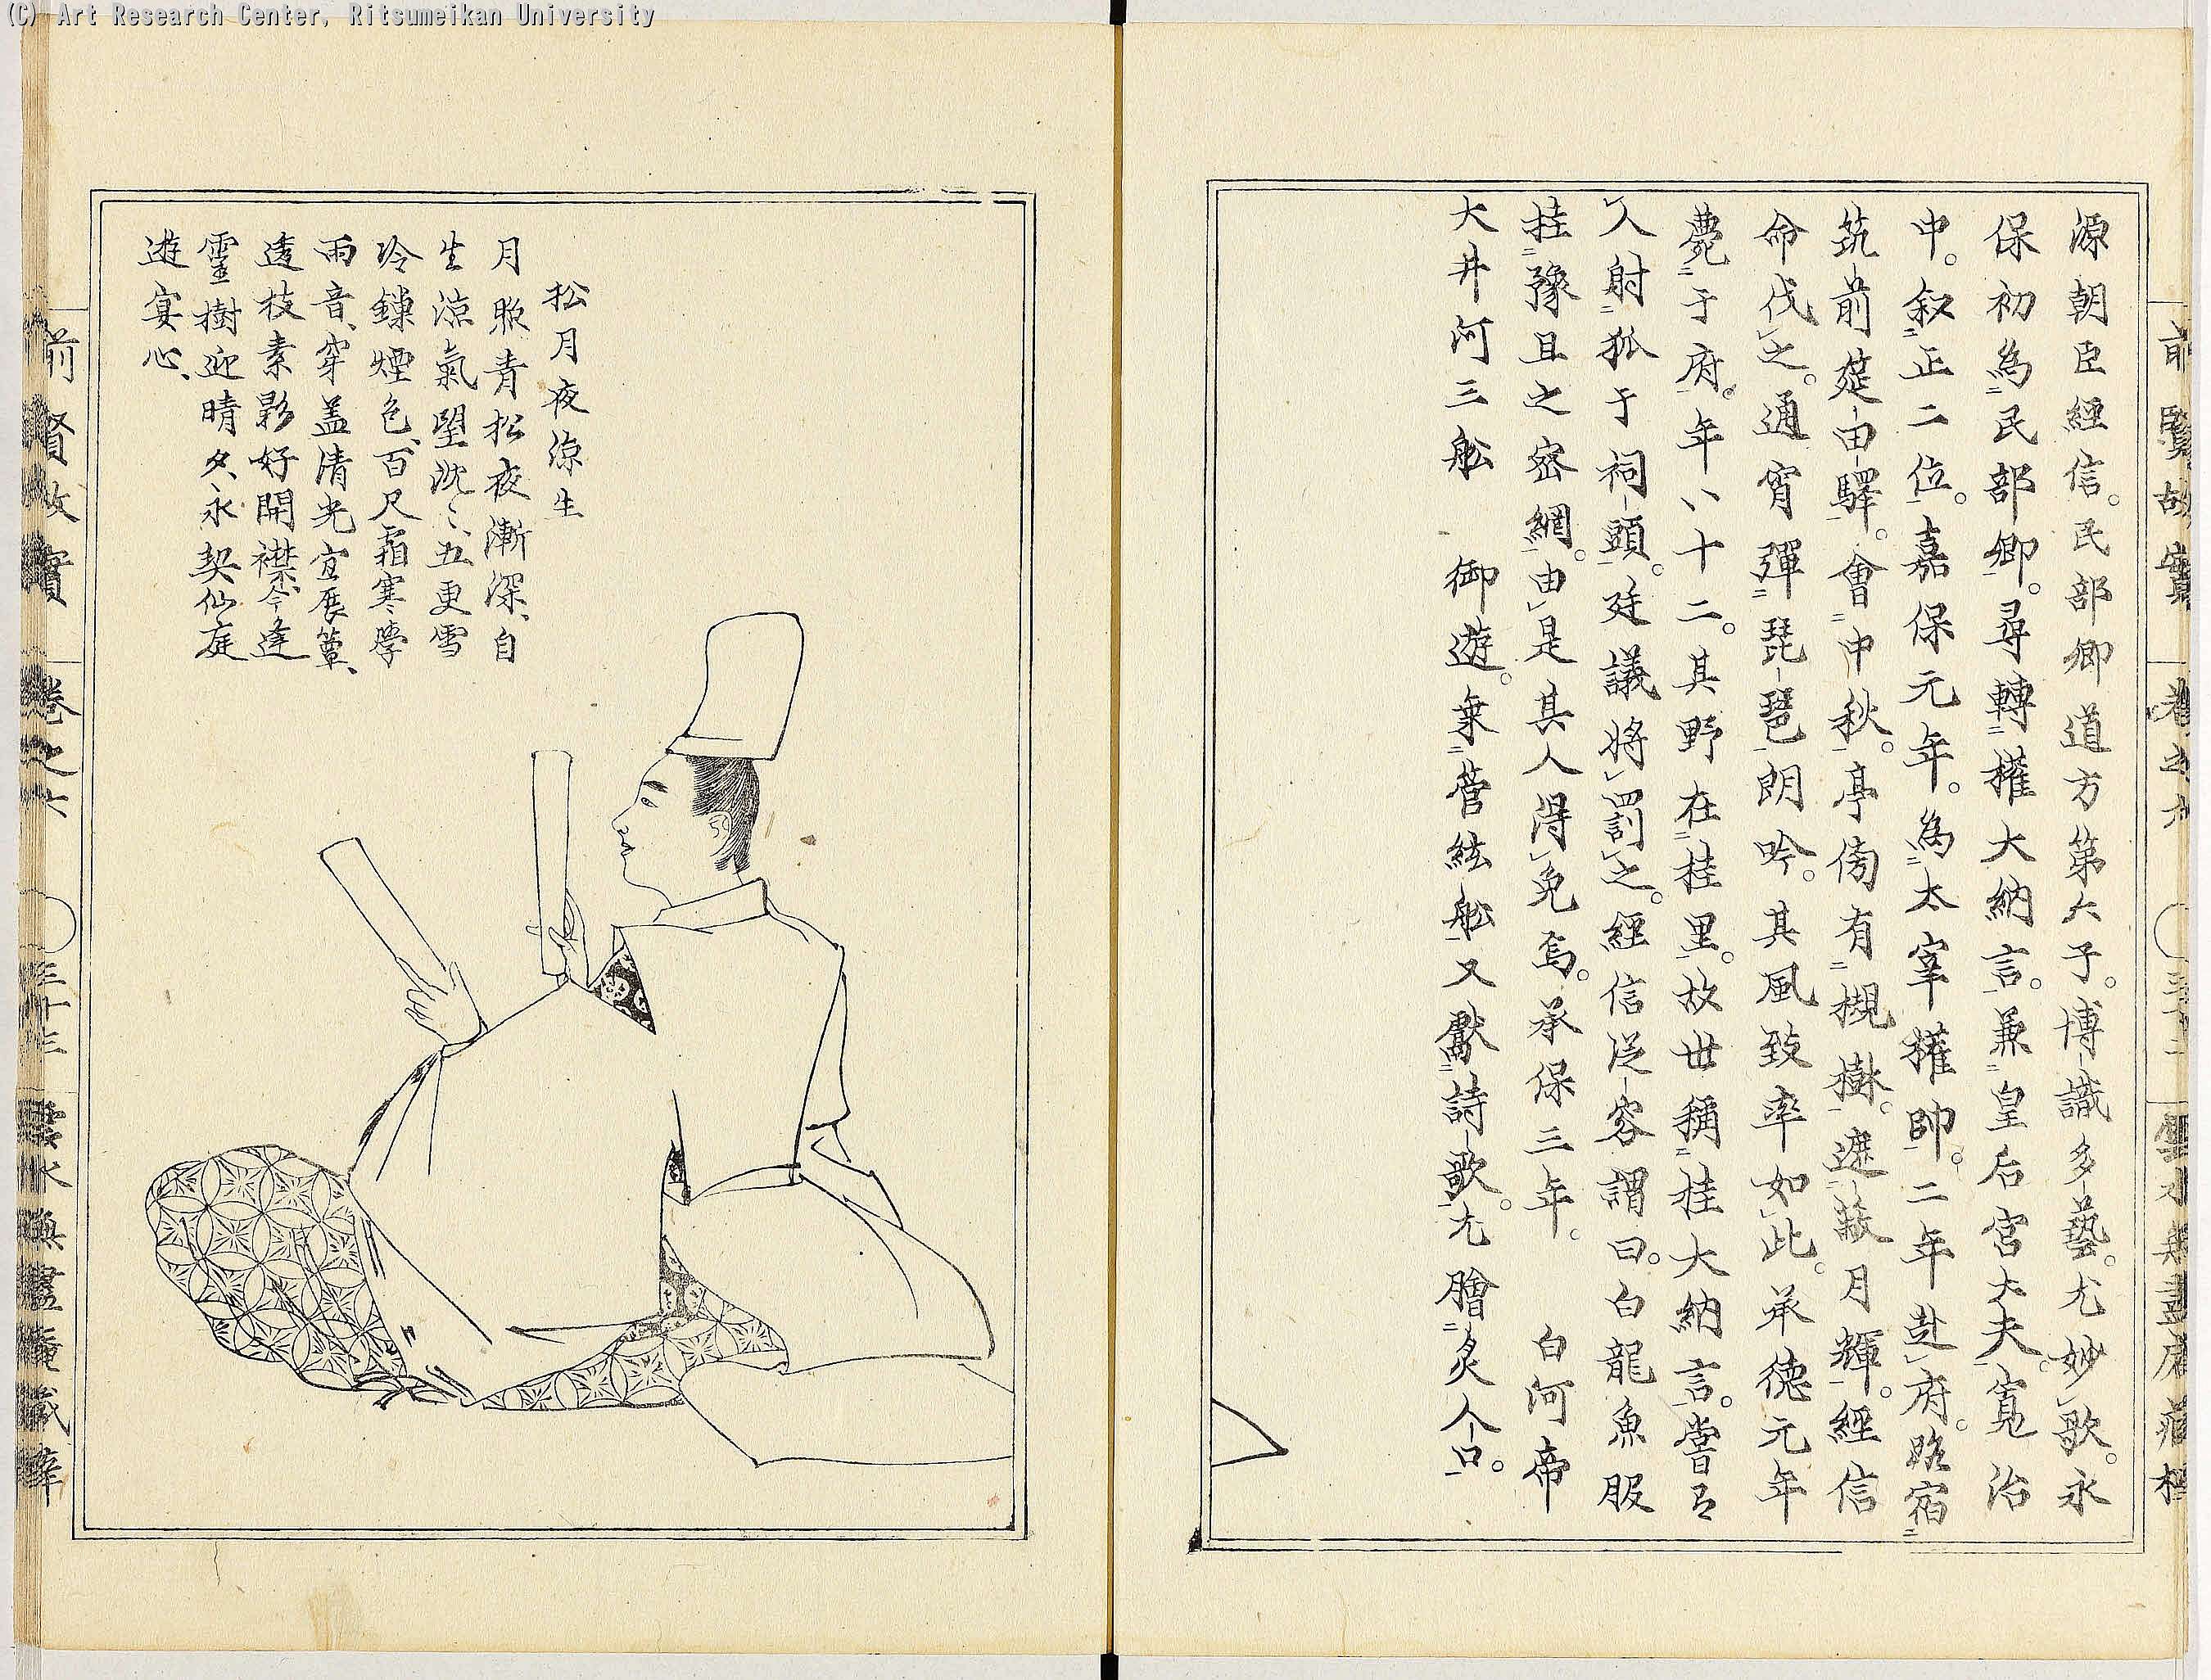 (C) Art Research Center, Ritsumeikan University
源朝臣經信。民部卿道方第六子。博識多藝。尤妙歌。永
保初為民部卿。尋轉權大納言。兼皇后宮大夫。寬治
中。叙正二位。嘉保元年。為太宰權帥。二年赴府。路宿
筑前莚由驛。會中秋。亭傍有槻樹。遮蔽月輝。經信
命伐之。通宵彈琵琶朗吟。其風致率如此。承德元年
薨于府。年八十二。其野在桂里。故世稱桂大納言。嘗有
人射狐于祠頭。廷議將罰之。經信從容謂曰。白龍魚服
挂豫且之密網。由是其人得免焉。承保三年。 白河帝
大井河三舩 御遊。乗管絃舩又獻詩歌。尤膾炙人口。
松月夜涼生
月照青松夜漸深、自
生涼氣望沈〻、五更雪
冷鏁煙色、百尺霜寒學
雨音、穿盖清光宜展簟、
透枝素影好開襟、今逢
靈樹迎晴夕、永契仙庭
遊宴心、
前賢故實 卷之六 三十三